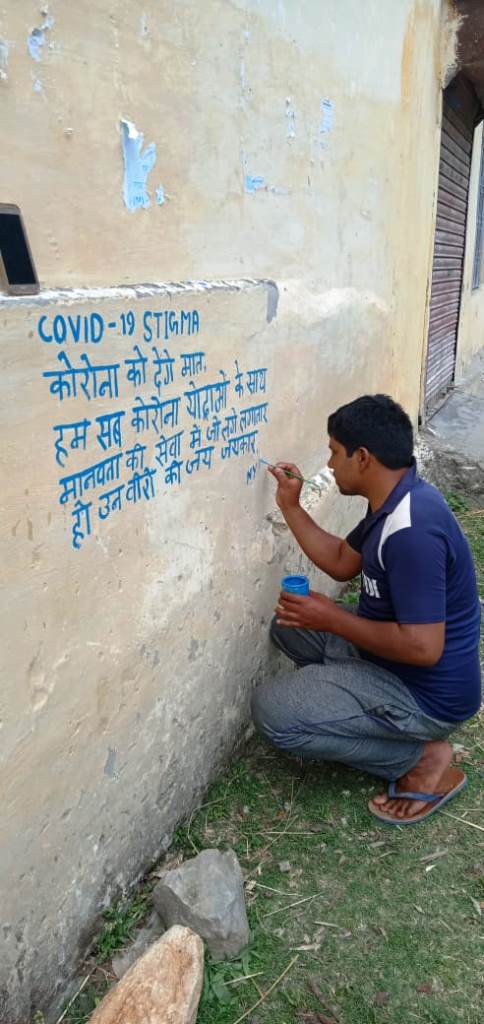 COVID-19 STIGMA
कोरोना को देगे मात,
हम सब कोरोना योद्राओ के साथ
मानवता की सेवा में जो लगे लगातार
हो उन वीरों की जय जयकार
NY